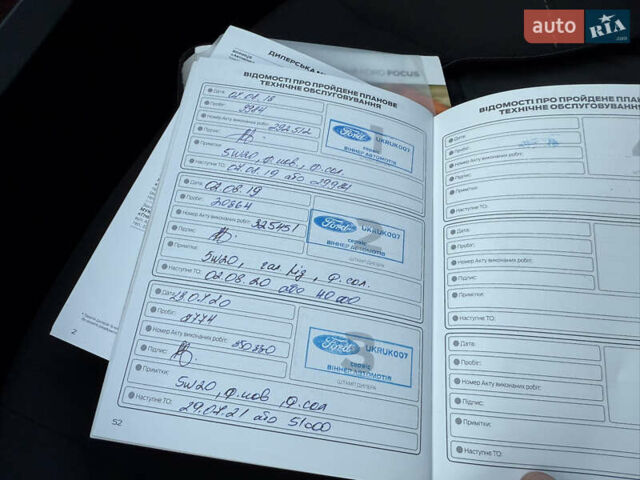 auto RIA.com
ДИПЕРСЬКА
FORD FOCUS
ВІДОМОСТІ ПРО ПРОЙДЕНЕ ПЛАНОВЕ
ТЕХНІЧНЕ ОБСЛУГОВУВАННЯ
Дата:
Пробіг:
Номер Акту виконаних робіт: 292512
Підпис:
Примітки: 5W20, ф. пов, ф. сал.
Наступне ТО:
1
Ford
UKRUK007
сервіс
ВІННЕР АВТОМОТІВ
Дата: 02.08.19
Пробіг: 20864
Номер Акту виконаних робіт: 325451
Підпис:
Примітки: 5W20, ф. сал.
Наступне ТО: 02.08.20 або 40000
2
Ford
UKRUK007
сервіс
ВІННЕР АВТОМОТІВ
ШТАМП ДИЛЕРА
Дата:
Пробіг:
Номер Акту виконаних робіт:
Підпис:
Примітки: 5W20, ф. пов, ф. сал
Наступне ТО: 29.07.21 або 51000
3
Ford
UKRUK007
сервіс
ВІННЕР АВТОМОТІВ
ШТАМП ДИЛЕРА
52
2
ВІДОМОСТІ ПРО ПРОЙДЕНЕ ПЛАНОВЕ
ТЕХНІЧНЕ ОБСЛУГОВУВАННЯ
Дата:
Пробіг:
Номер Акту виконаних робіт:
Підпис:
Примітки:
Наступне ТО:
Дата:
Пробіг:
Номер Акту виконаних робіт:
Підпис:
Примітки:
Наступне ТО:
Дата:
Пробіг:
Номер Акту виконаних робіт:
Підпис:
Примітки:
Наступне ТО: